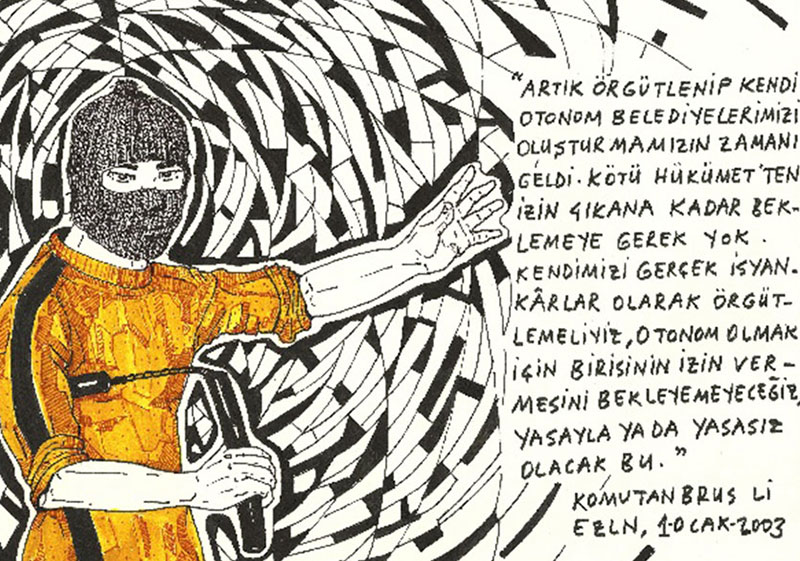 "ARTIK ÖRGÜTLENİP KENDİ
OTONOM BELEDİYELERİMİZİ
OLUŞTURMAMIZIN ZAMANI
GELDİ. KÖTÜ HÜKÜMET'TEN
İZİN ÇIKANA KADAR BEK-
LEMEYE GEREK YOK.
KENDİMİZİ GERÇEK İSYAN-
KÂRLAR OLARAK ÖRGÜT-
LEMELİYİZ, OTONOM OLMAK
İÇİN BİRİSİNİN İZİN VER-
MESİNİ BEKLEYEMEYECEĞİZ,
YASAYLA YA DA YASASIZ
OLACAK BU."
KOMUTAN BRUS Lİ
EZLN, 1-OCAK-2003